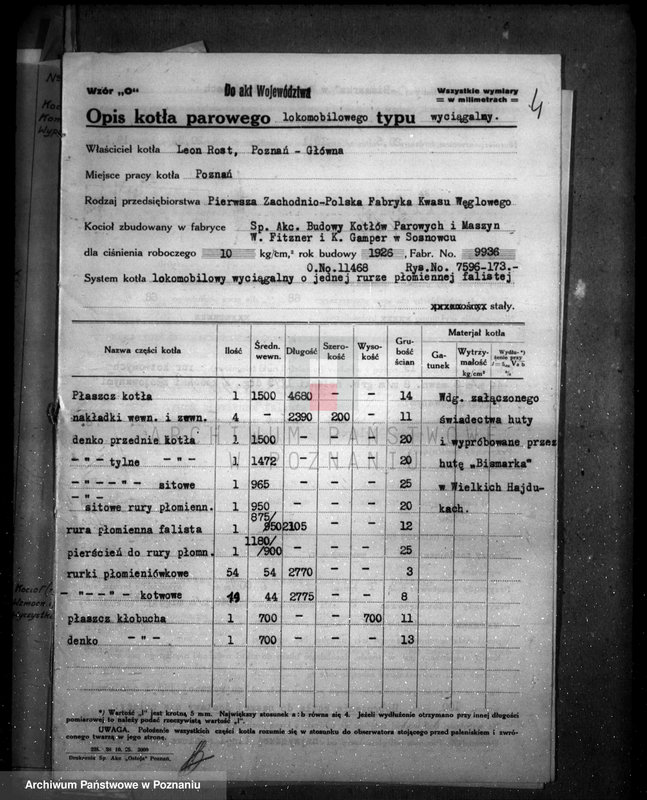 Wzór „O“
Do akt Województwa
Wszystkie wymiary
w milimetrach
4
Opis kotła parowego lokomobilowego typu wyciągalny.
Właściciel kotła Leon Rost, Poznań - Główna
Miejsce pracy kotła Poznań
Rodzaj przedsiębiorstwa Pierwsza Zachodnio-Polska Fabryka Kwasu Węglowego
Kocioł zbudowany w fabryce Sp. Akc. Budowy Kotłów Parowych i Maszyn
W. Fitzner i K. Gamper w Sosnowcu
dla ciśnienia roboczego 10 kg/cm,² rok budowy 1926, Fabr. No. 9936
O.No.11468 Rys.No. 7596-173.-
System kotła lokomobilowy wyciągalny o jednej rurze płomiennej falistej
stały.
Nazwa części kotła Ilość Średn. wewn. Długość Szerokość Wysokość Grubość ścian Materjał kotła
Gatunek Wytrzymałość kg/cm²
Płaszcz kotła 1 1500 4680 - - 14 Wdg. załączonego
nakładki wewn. i zewn. 4 - 2390 200 - 11 świadectwa huty
denko przednie kotła 1 1500 - - - 20 i wypróbowane przez
-"-"- tylne -"-"- 1 1472 - - - 20 hutę „Bismarka"
-"-"-"-"- sitowe 1 965 - - - 25 w Wielkich Hajdu-
-"-"-
sitowe rury płomienn. 1 950 - - - 20 kach.
rura płomienna falista 1 875/950 2105 - - 12
pierścień do rury płomn. 1 1180/900 - - - 25
rurki płomieniówkowe 54 54 2770 - - 3
-"-"-"- kotwowe 14 44 2775 - - 8
płaszcz kłobucha 1 700 - - 700 11
denko -"-"- 1 700 - - 13
*/ Wartość „l" jest krotną 5 mm. Największy stosunek a : b równa się 4. Jeżeli wydłużenie otrzymano przy innej długości
pomiarowej to należy podać rzeczywistą wartość „l".
UWAGA. Położenie wszystkich części kotła rozumie się w stosunku do obserwatora stojącego przed paleniskiem i zwró-
conego twarzą w jego stronę.
Drukarnia Sp. Akc „Ostoja" Poznań.
ARCHIWUM PAŃSTWOWE
W POZNANIU
Archiwum Państwowe w Poznaniu